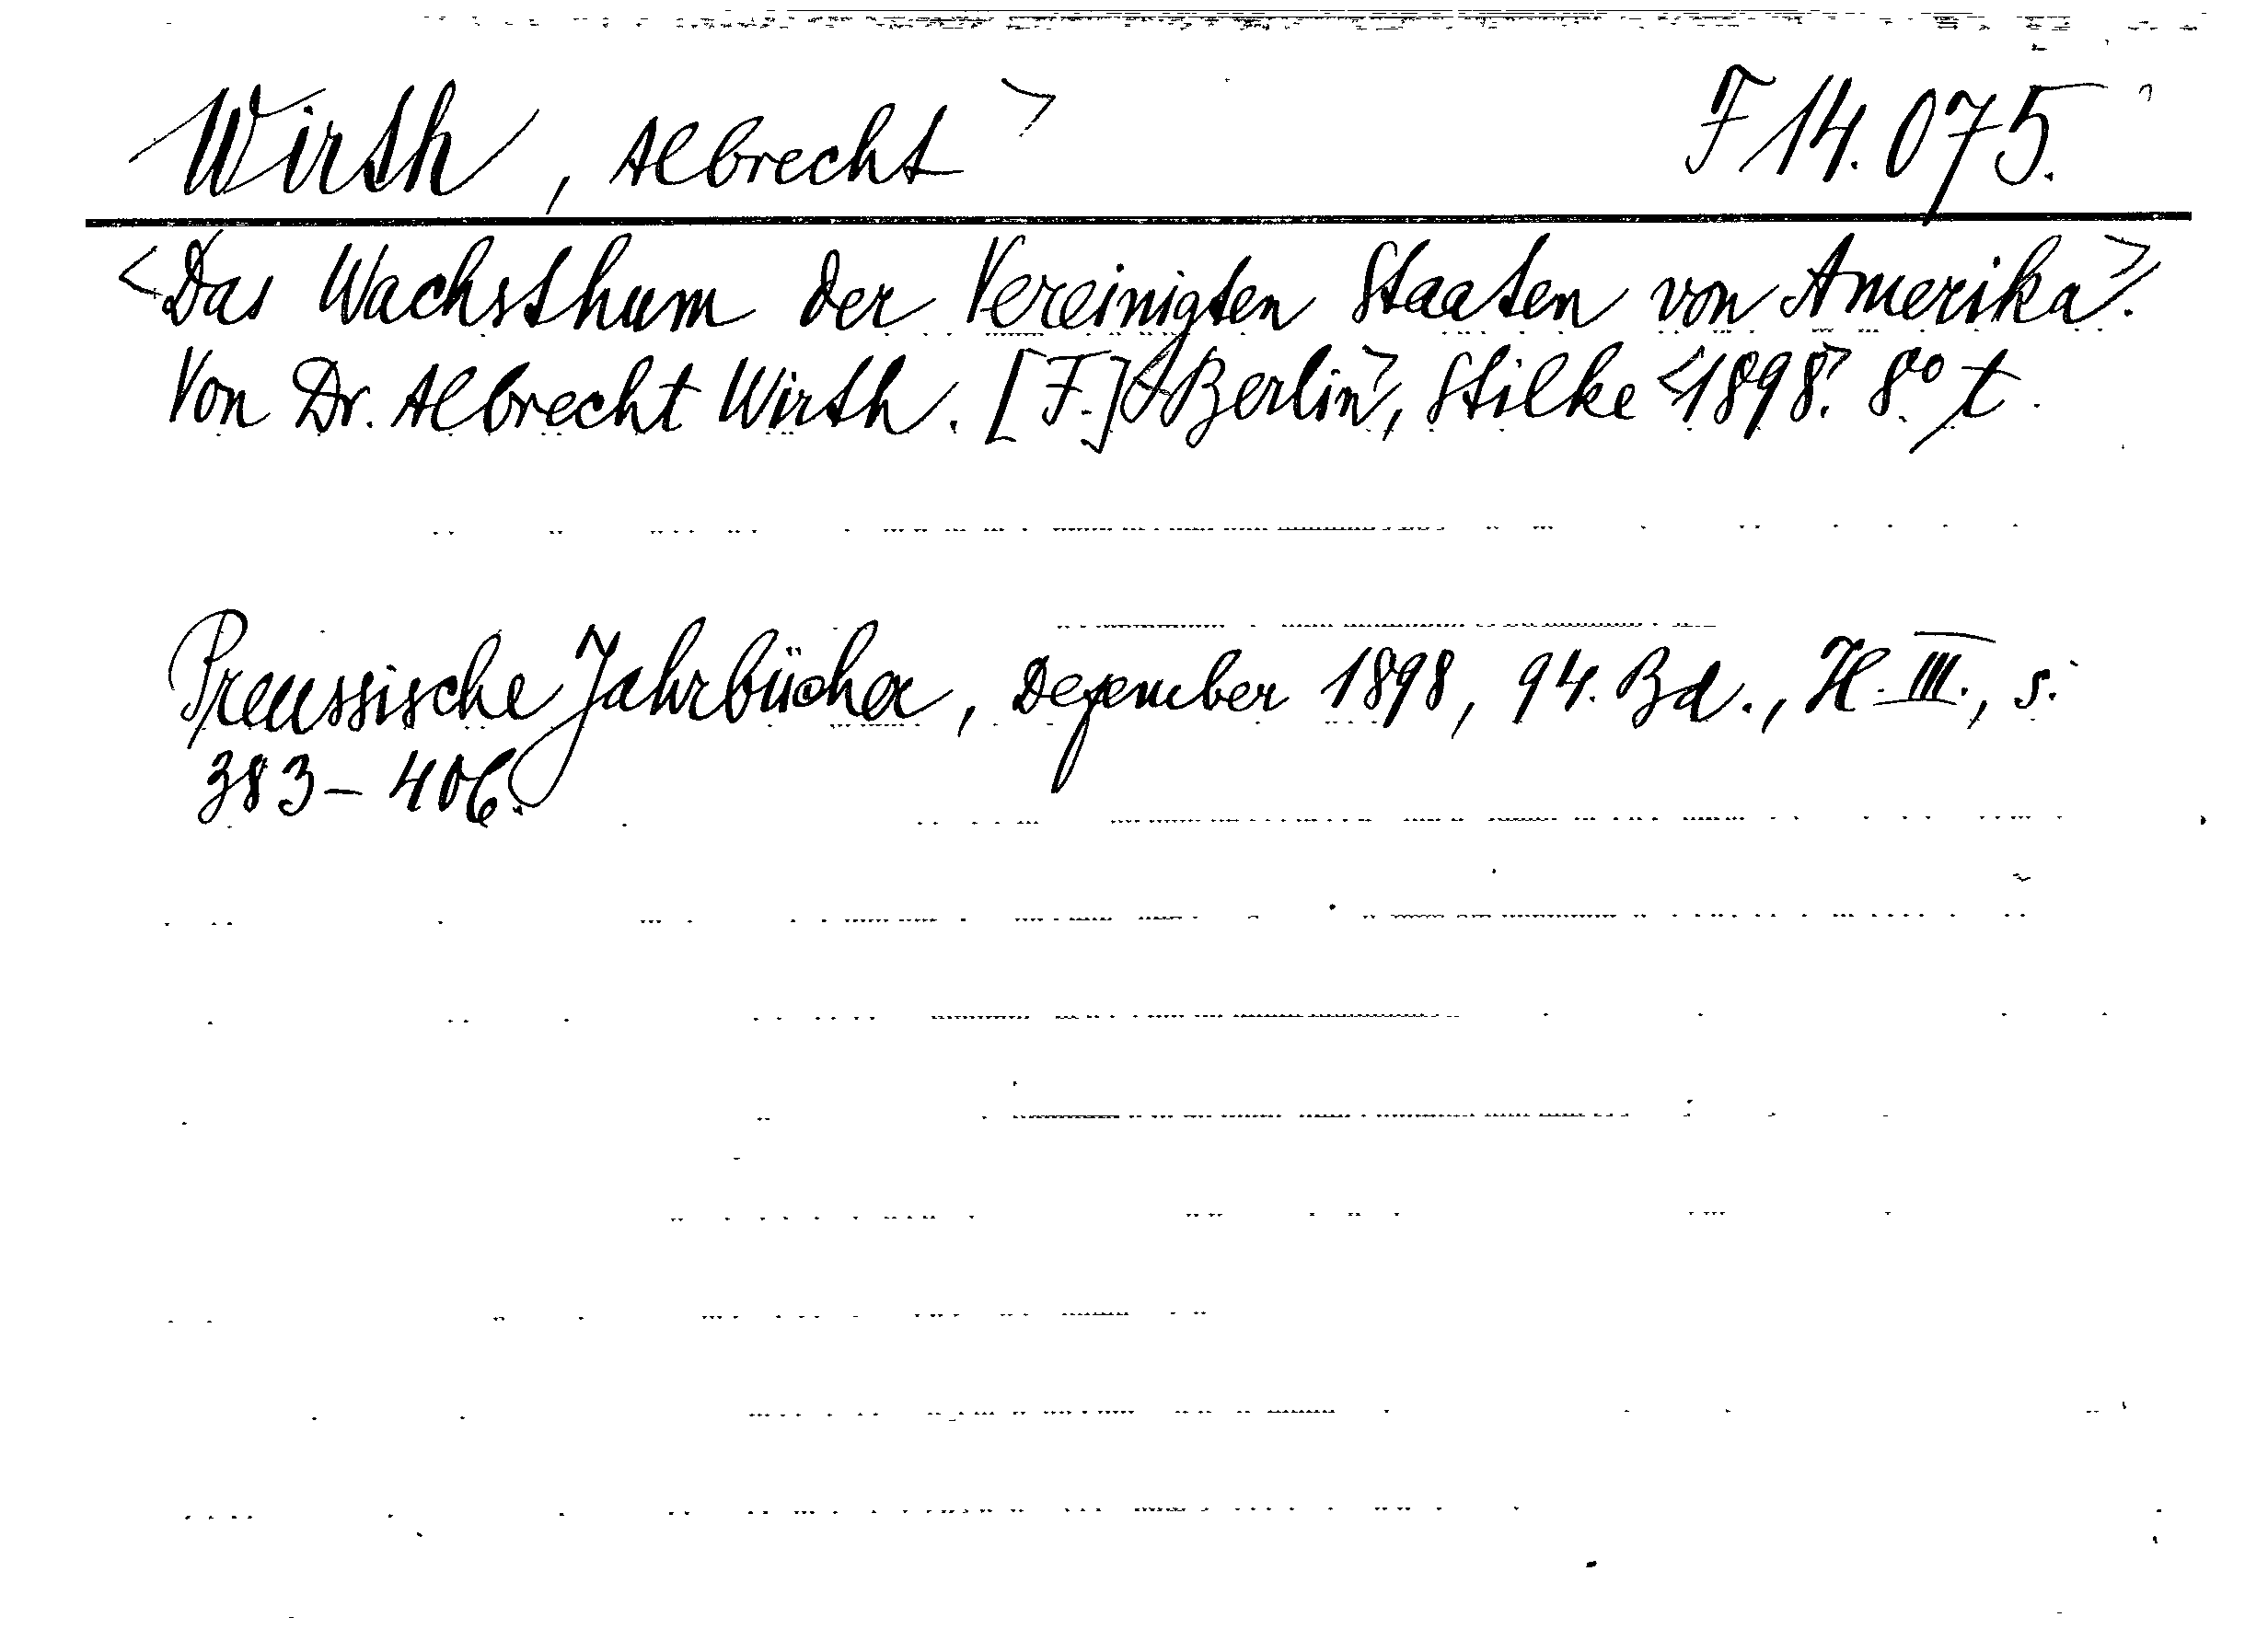 Wirth, Albrecht> F 14.075.
<Das Wachsthum der Vereinigten Staaten von Amerika>.
Von Dr. Albrecht Wirth. [F.] <Berlin>, Stilke <1898>. 8° t.
Preussische Jahrbücher, Dezember 1898, 94. Bd., H. III., s.
383-406.